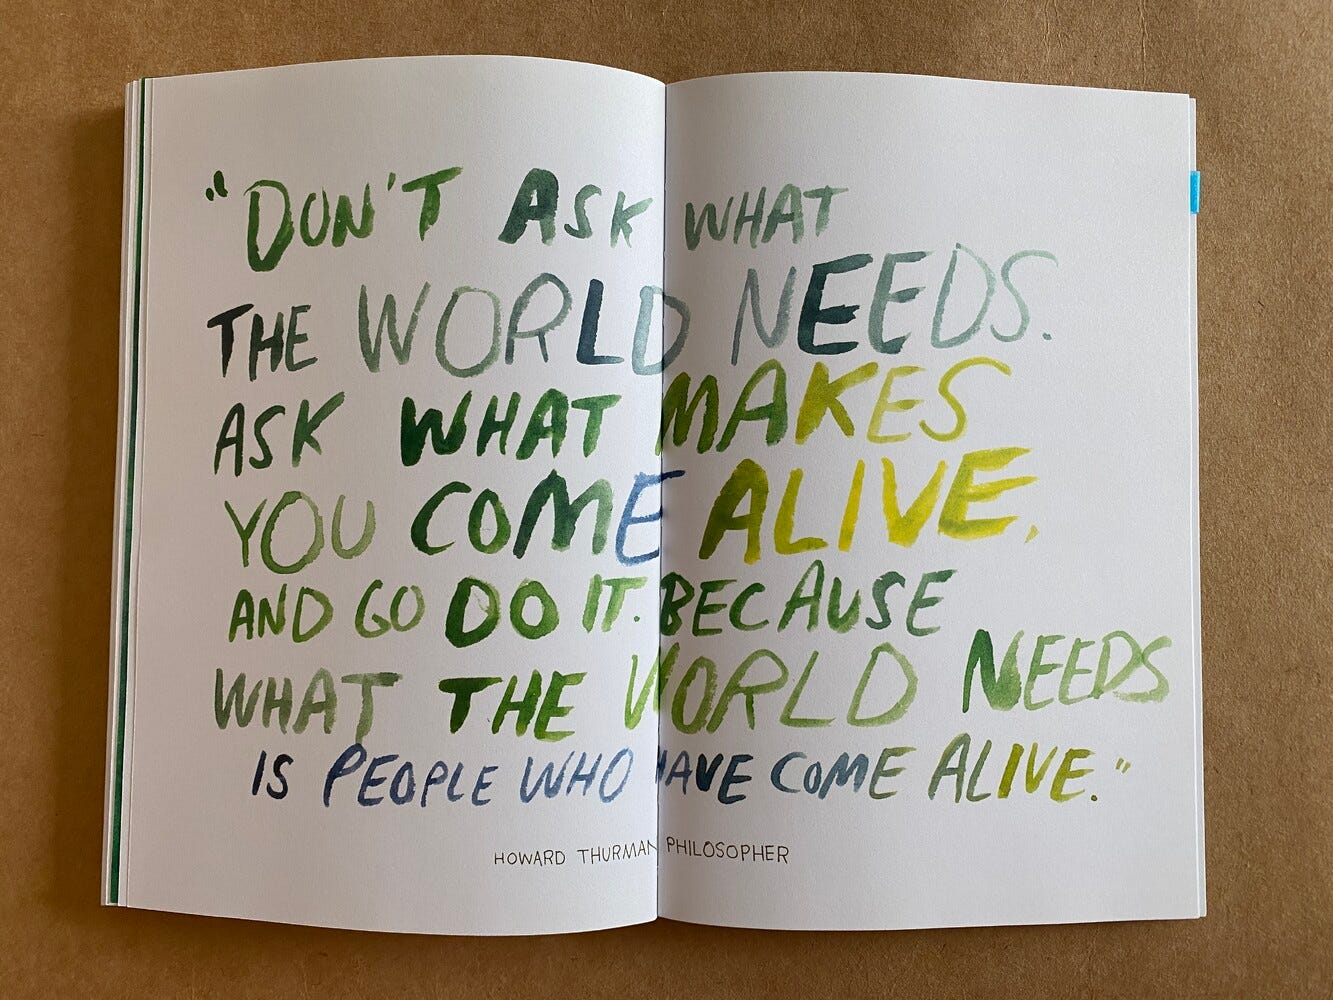 "DON'T ASK WHAT
THE WORLD NEEDS.
ASK WHAT MAKES
YOU COME ALIVE,
AND GO DO IT. BECAUSE
WHAT THE WORLD NEEDS
IS PEOPLE WHO HAVE COME ALIVE."
HOWARD THURMAN PHILOSOPHER